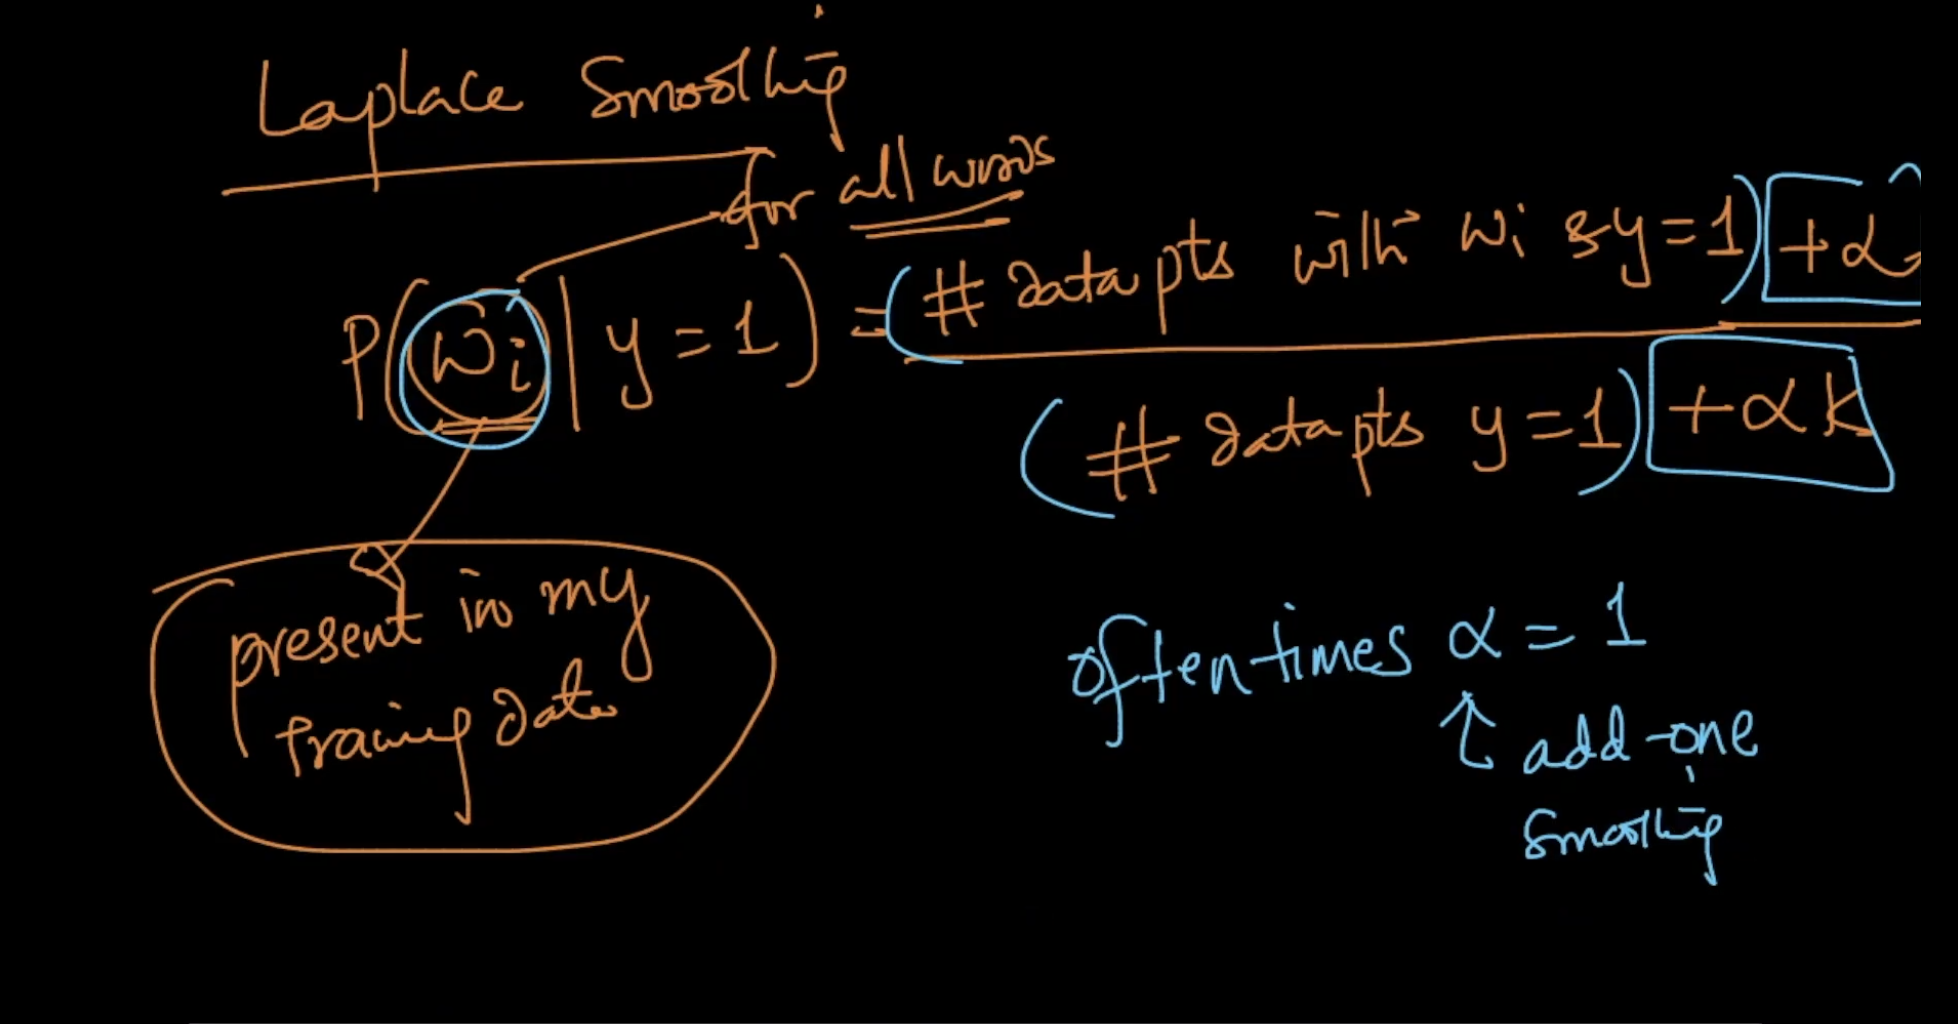 Laplace Smoothing
for all words
P(wi | y = 1) = (# data pts with wi & y = 1) + α
(# data pts y = 1) + αk
present in my
training data
often times α = 1
↑ add-one
smoothing